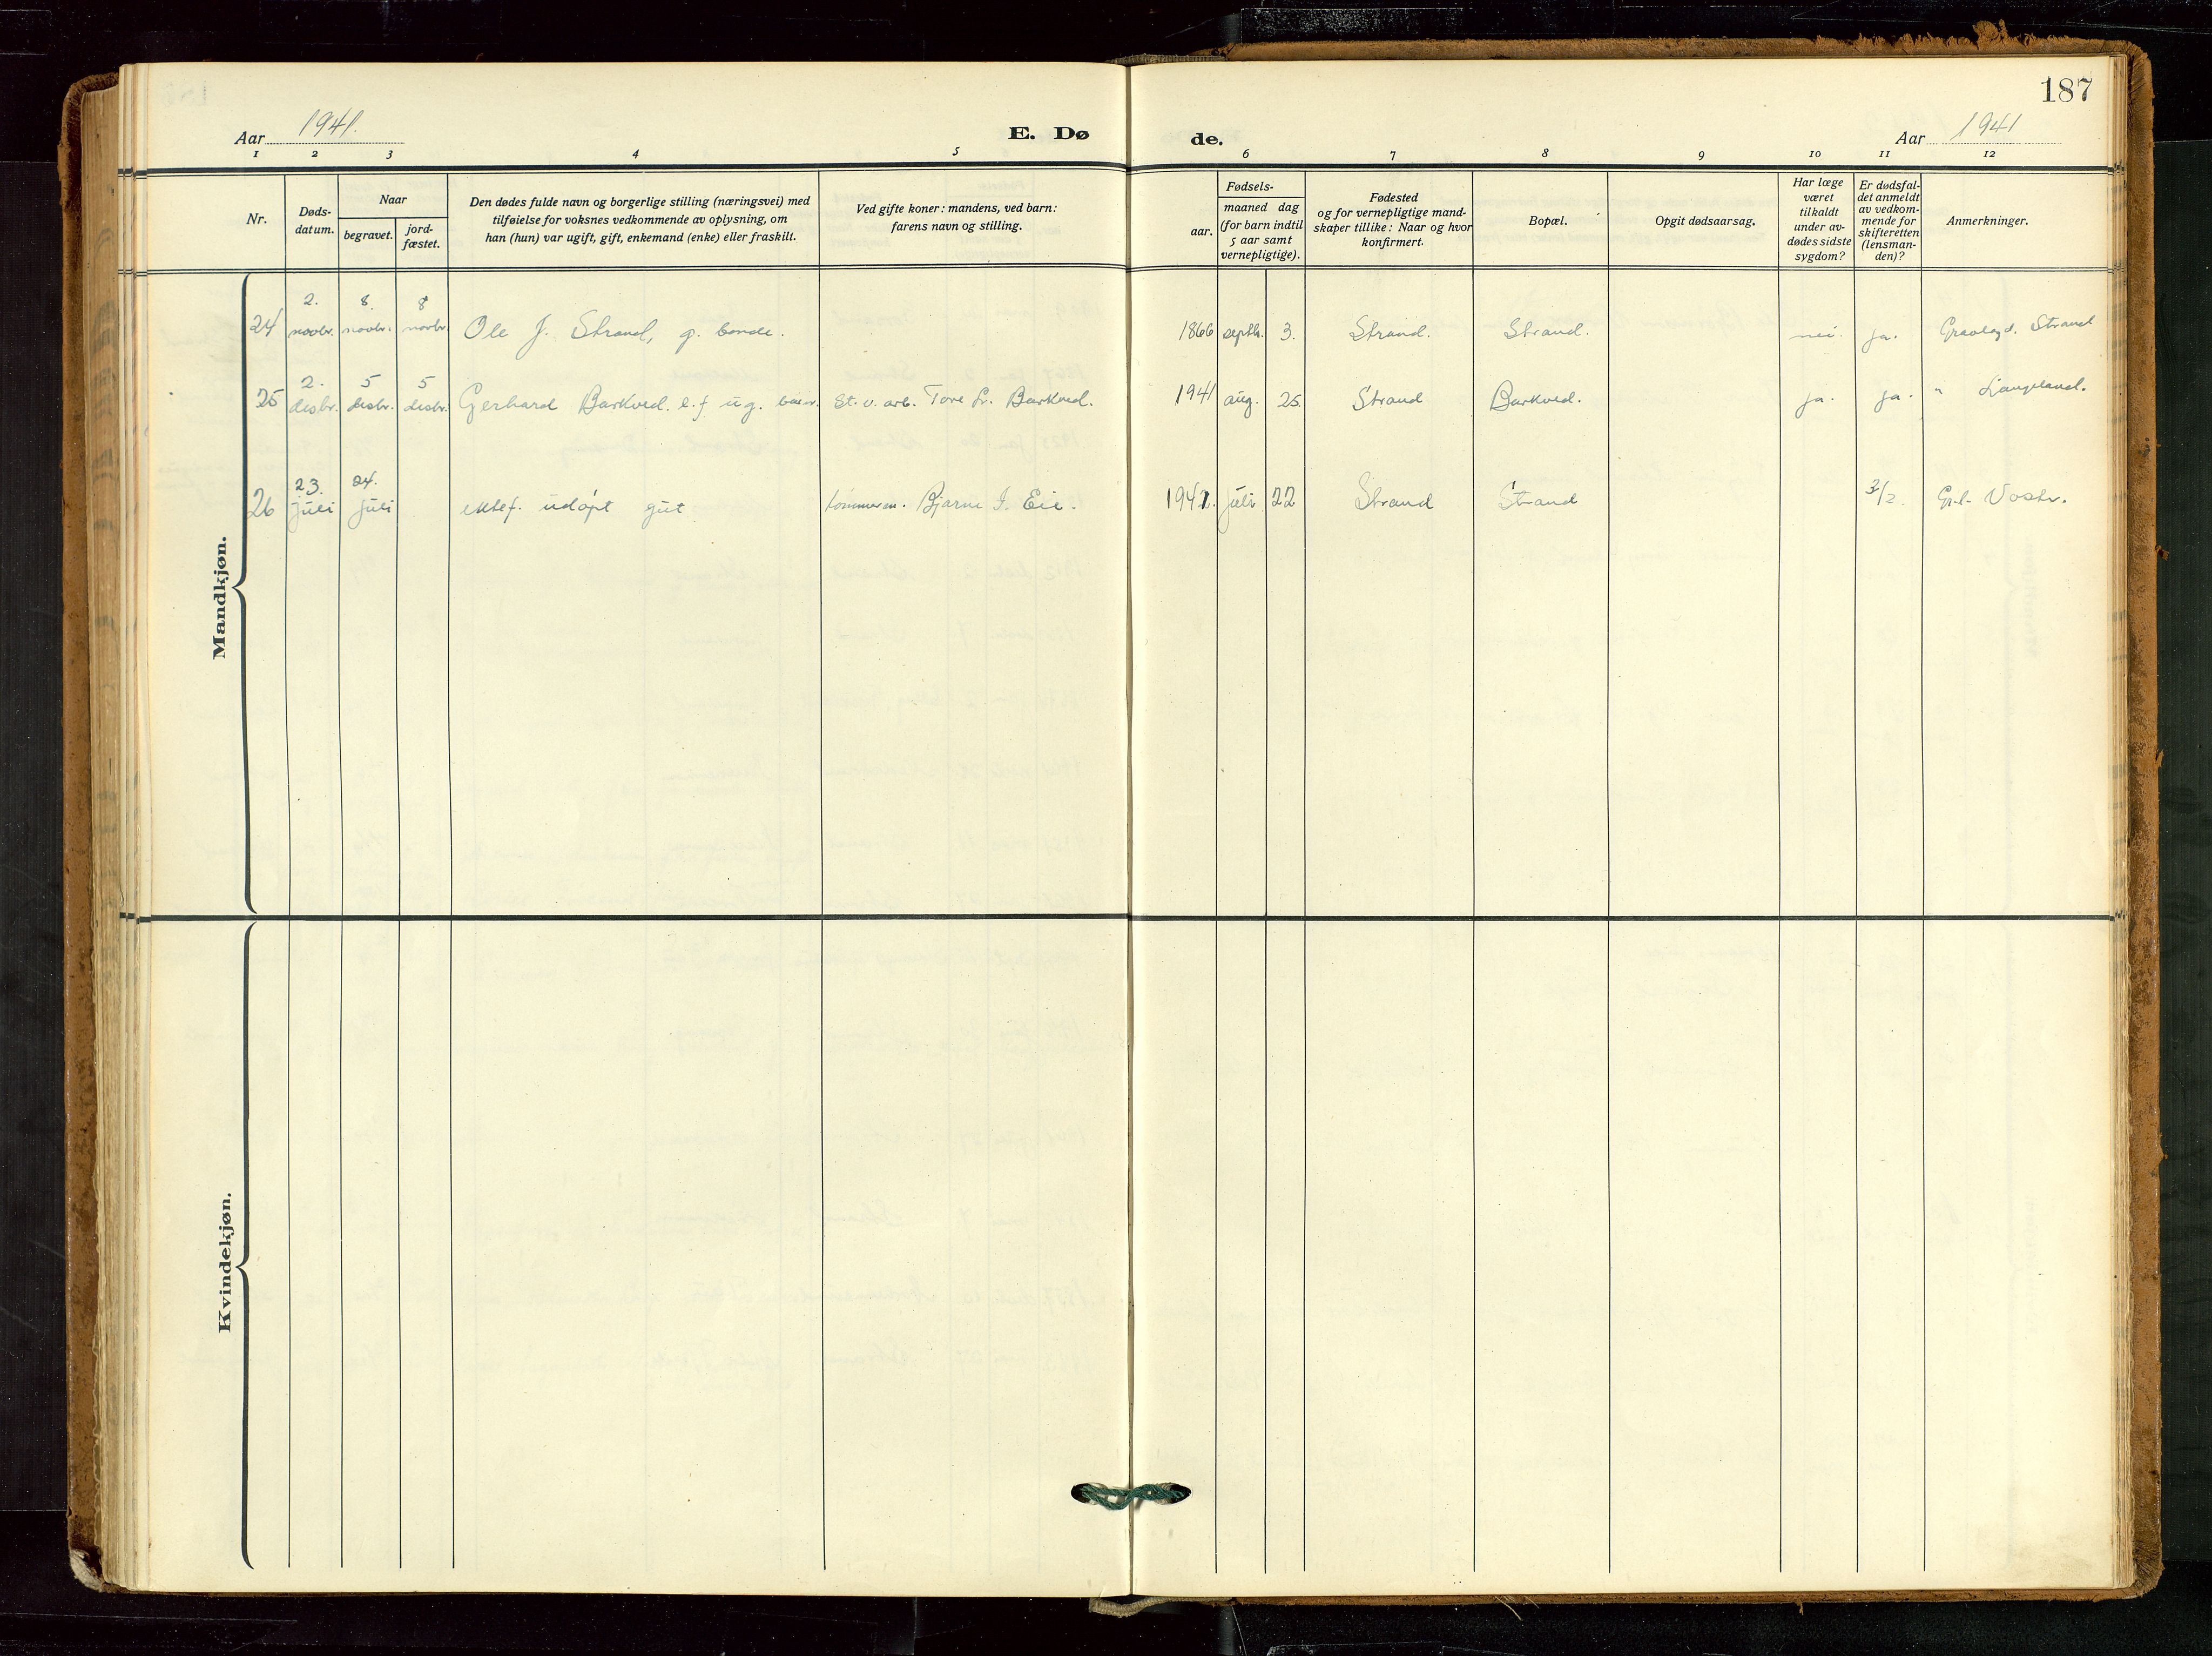 187
Aar 1941.
E. Dø
de.
Aar 1941
1 2 3 4 5 6 7 8 9 10 11 12
Nr.
Døds-
datum.
Naar
begravet.
jord-
fæstet.
Den dødes fulde navn og borgerlige stilling (næringsvei) med
tilføielse for voksnes vedkommende av oplysning, om
han (hun) var ugift, gift, enkemand (enke) eller fraskilt.
Ved gifte koner: mandens, ved barn:
farens navn og stilling.
Fødsels-
aar.
maaned dag
(for barn indtil
5 aar samt
vernepligtige).
Fødested
og for vernepligtige mand-
skaper tillike: Naar og hvor
konfirmert.
Bopæl.
Opgit dødsaarsag.
Har læge
været
tilkaldt
under av-
dødes sidste
sygdom?
Er dødsfal-
det anmeldt
av vedkom-
mende for
skifteretten
(lensman-
den)?
Anmerkninger.
Mandkjøn.
2. 8. 8
24 novbr. novbr. novbr. Ole J. Strand, g. bonde. 1866 septb. 3. Strand. Strand. nei. ja. Gravlagd. Strand
2. 5 5
25 desbr. desbr. desbr. Gerhard Barkved. e.f ug. St. v. arb. Tore Barkved. 1941 aug. 25. Strand Barkved. ja. ja. " Langeland.
23. 24.
26 juli juli ektef. udøpt gut Bjarne I. Eie. 1941. juli 22 Strand Strand 3/2. Gr.l.
Kvindekjøn.